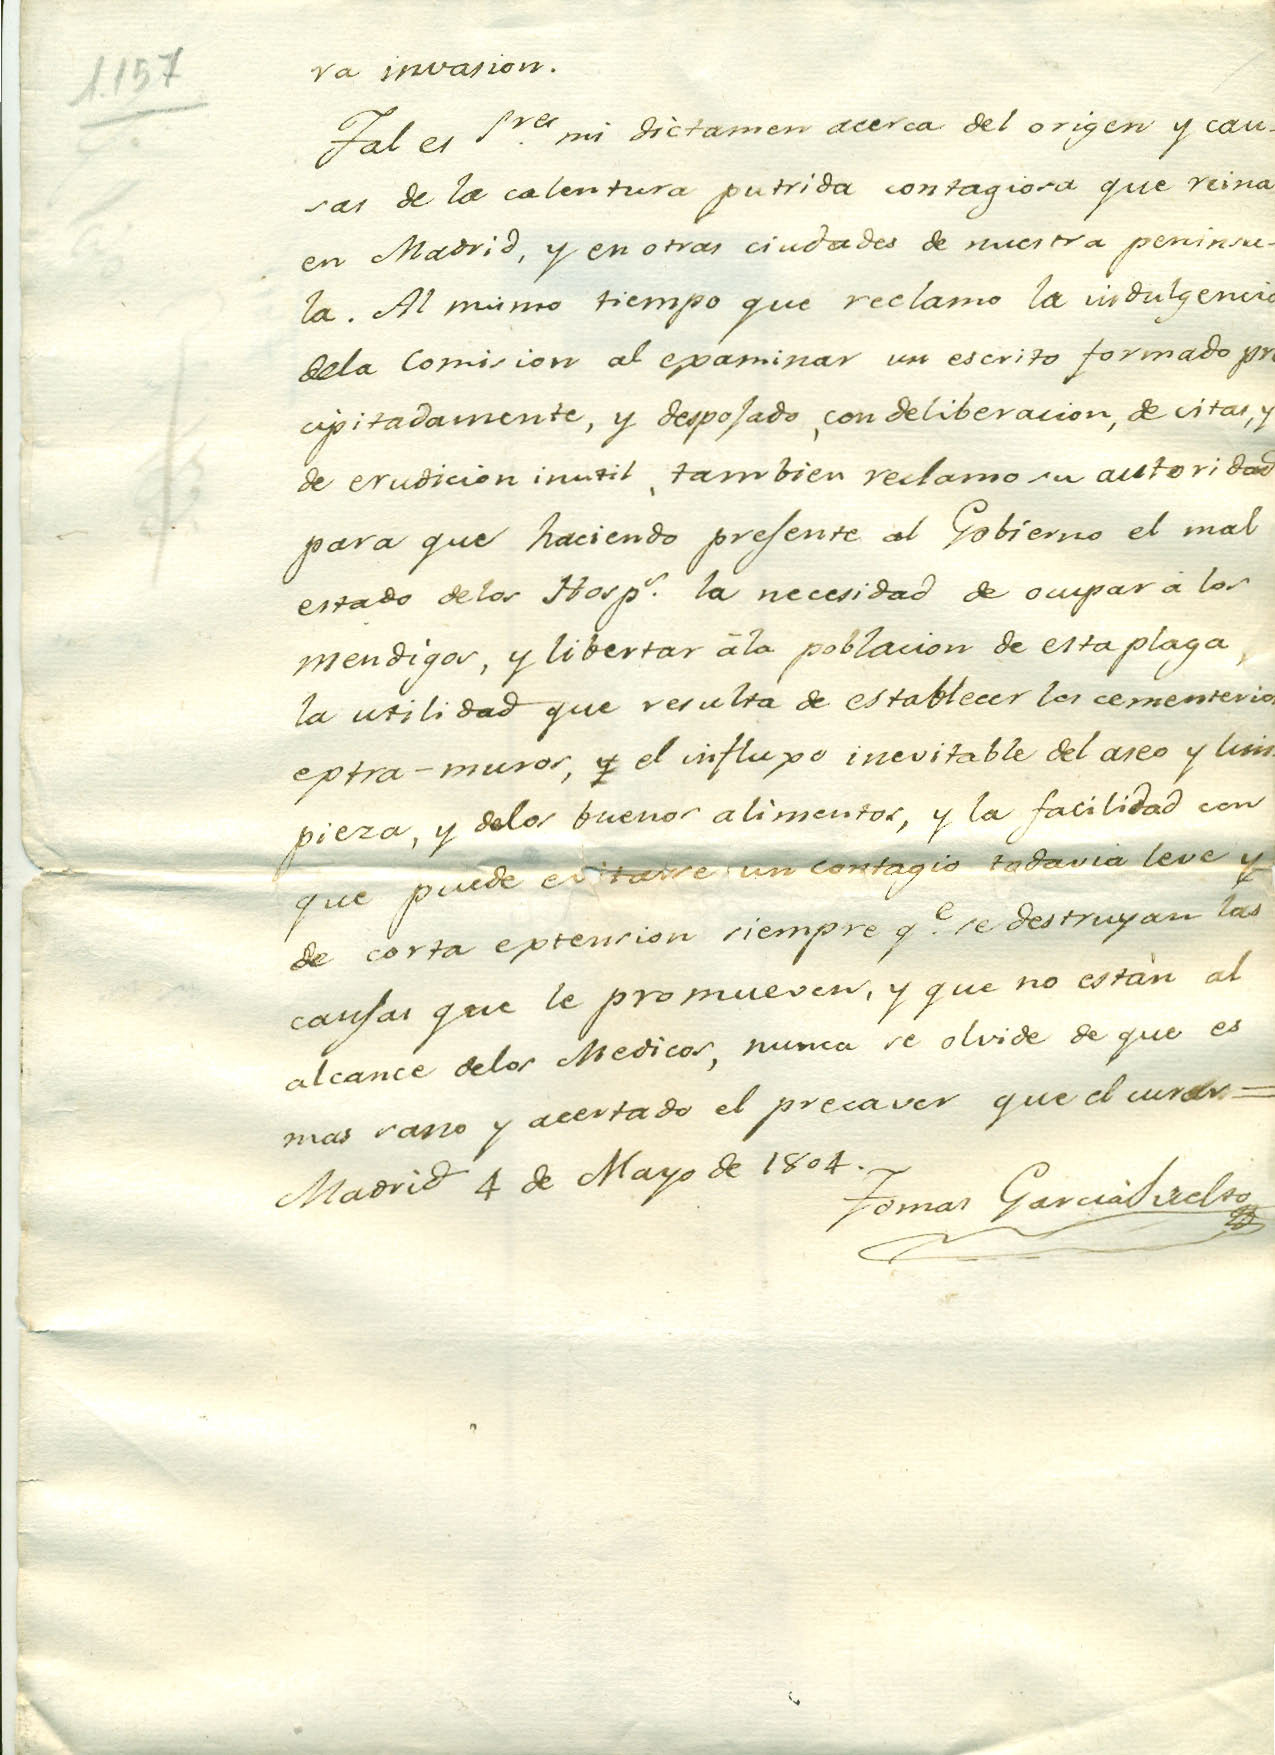 1.157
ra invasion.
Tal es Sres. mi dictamen acerca del origen y cau-
sas de la calentura putrida contagiosa que reina
en Madrid, y en otras ciudades de nuestra peninsu-
la. Al mismo tiempo que reclamo la indulgencia
dela Comision al examinar un escrito formado pre
cipitadamente, y despojado, con deliberacion, de citas, y
de erudicion inutil, tambien reclamo su autoridad
para que haciendo presente al Gobierno el mal
estado delos Hosps. la necesidad de ocupar à los
mendigos, y libertar àla poblacion de esta plaga,
la utilidad que resulta de establecer los cementerios
extra-muros, y el influxo inevitable del aseo y lim-
pieza, y delos buenos alimentos, y la facilidad con
que puede evitarse un contagio todavia leve y
de corta extension siempre qe. se destruyan las
causas que le promueven, y que no estàn al
alcance delos Medicos, nunca se olvide de que es
mas sano y acertado el precaver que el curar=
Madrid 4 de Mayo de 1804.
Tomas Garcia Suelto